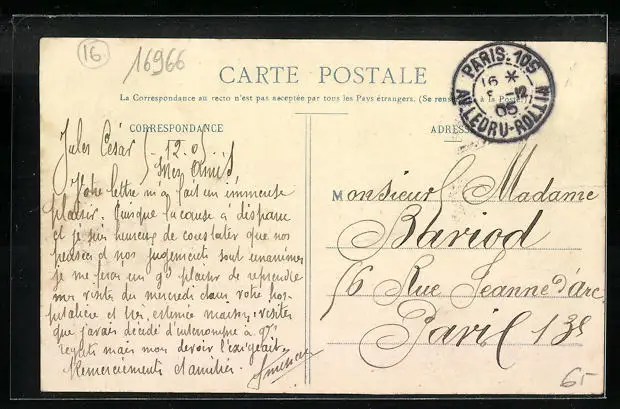 16.
16966
CARTE POSTALE
La Correspondance au recto n'est pas acceptée par tous les Pays étrangers. (Se à la Poste)
PARIS.105
16 *
12
05
AV. LEDRU-ROLLIN
CORRESPONDANCE
ADRES
Jules César 5-12.05
Mes Amis
Votre lettre m'a fait un immense
plaisir. Puisque la cause a disparu
et je suis heureux de constater que nos
pensées et nos jugements sont unanimes
je me ferai un gd plaisir de reprendre
mes visites du mercredi dans votre hos-
pitalière et très estimée maison, visites
que j'avais décidé d'interrompre à gds
regrets mais mon devoir l'exigeait.
Remerciements et amitiés.
Monsieur Madame
Bariod
56 Rue Jeanne d'Arc
Paris 13e
65-